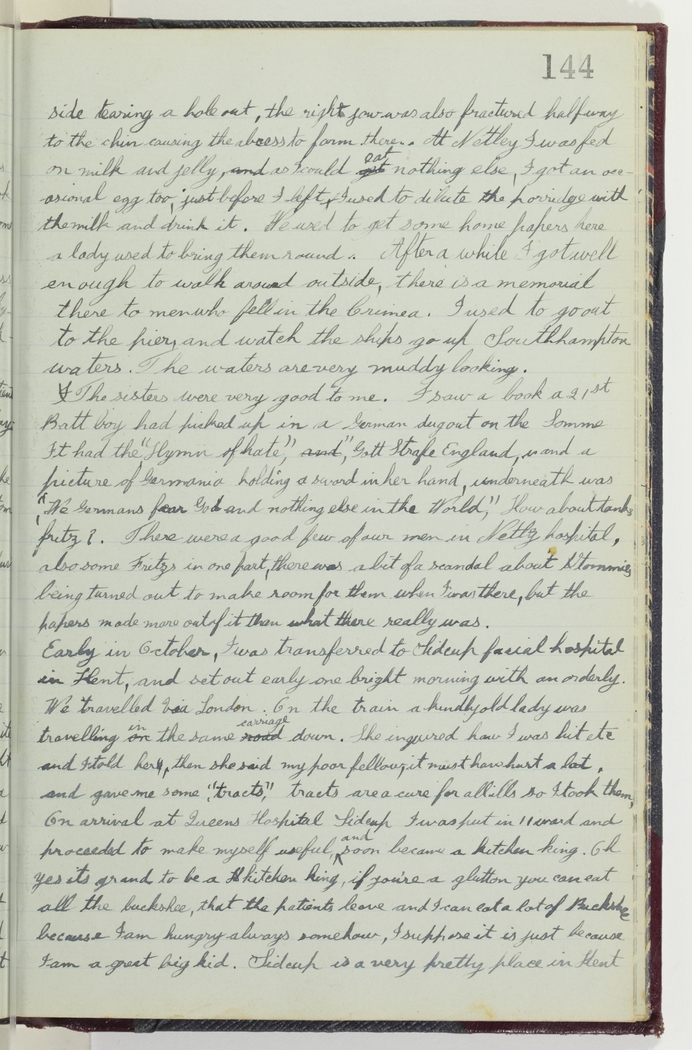 144
side tearing a hole out, the right jaw was also fractured halfway
to the chin causing the abcess to form there. At Netley I was fed
on milk and jelly, and as I could eat nothing else, I got an occ-
asional egg too, just before I left, I used to dilute the porridge with
the milk and drink it. We used to get some home papers here
a lady used to bring them round. After a while I got well
enough to walk around outside, there is a memorial
there to men who fell in the Crimea. I used to go out
to the pier, and watch the ships go up Southhampton
waters. The waters are very muddy looking.
The sisters were very good to me. I saw a book a 21st
Batt boy had picked up in a German dugout on the Somme
It had the "Hymn of hate", and "Gott Strafe England," and a
picture of Germania holding a sword in her hand, underneath was
"We Germans fear God and nothing else in the World," How about tanks
fritz?. There were a good few of our men in Netly hospital,
also some Fritzs in one part, there was a bit of a scandal about Tommies
being turned out to make room for them when I was there, but the
papers made more out of it than what there really was.
Early in October, I was transferred to Sidcup facial hospital
in Kent, and set out early one bright morning with an orderly.
We travelled via London. On the train a kindly old lady was
travelling in the same carriage down. She inquired how I was hit etc
and I told her, then she said my poor fellow, it must have hurt a lot,
and gave me some "tracts," tracts are a cure for all ills so I took them,
On arrival at Queens Hospital Sidcup I was put in 11 ward and
proceeded to make myself useful, and soon became a kitchen king. Oh
yes its grand to be a kitchen king, if you're a glutton you can eat
all the buckshee, that the patients leave and I can eat a lot of Buckshee
because I am hungry always somehow, I suppose it is just because
I am a great big kid. Sidcup is a very pretty place in Kent